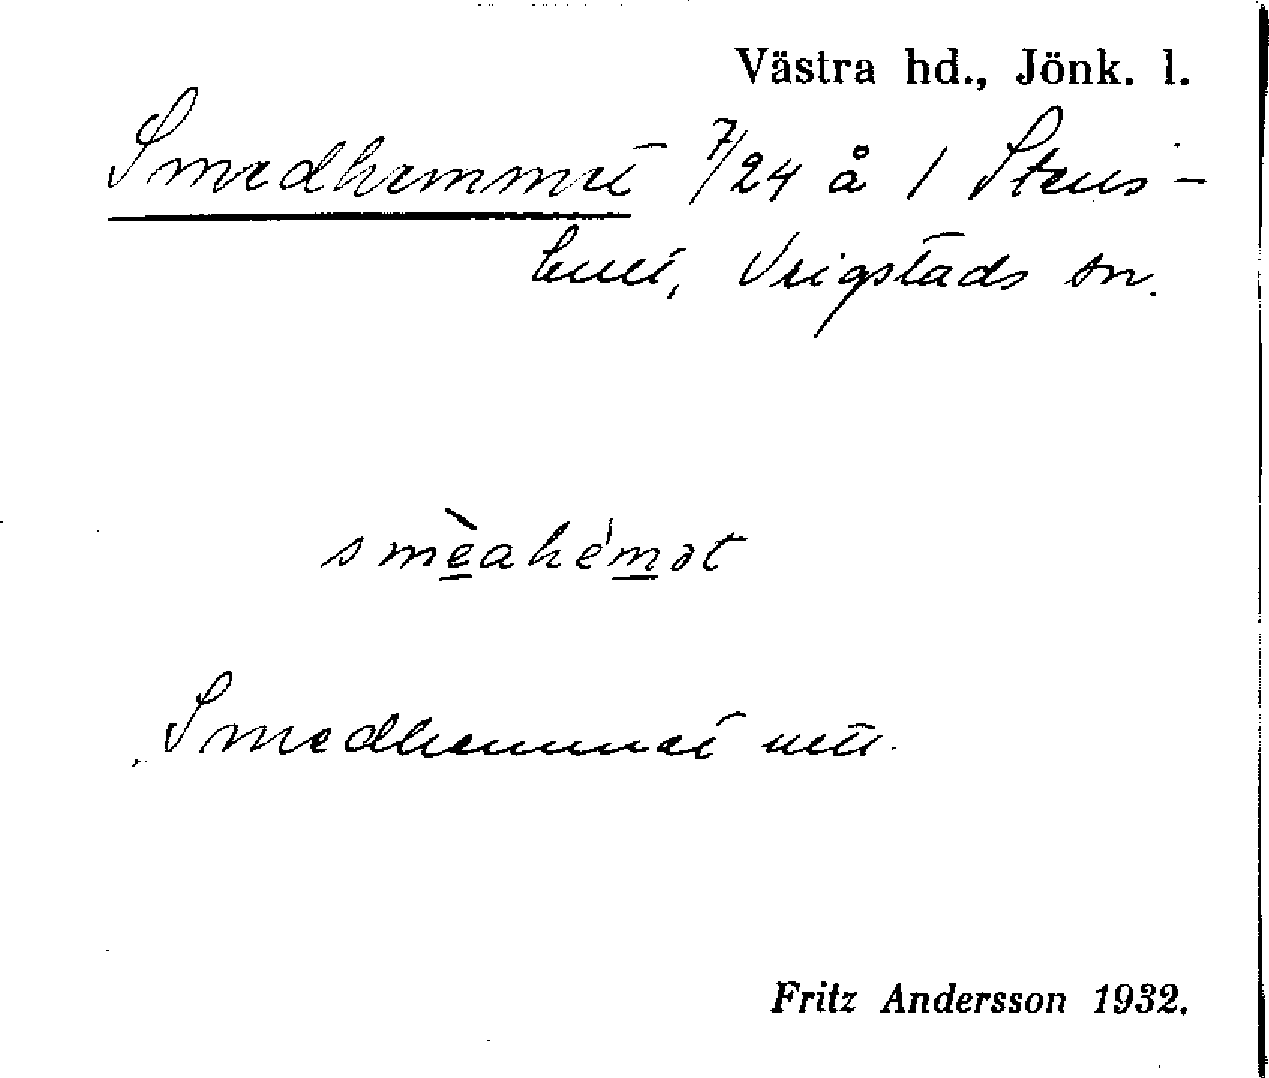 Västra hd., Jönk. l.
Smedhemmet 7/24 å 1 Stens-
hult, Vrigstads sn.
smèahémət
Smedhemmet
Fritz Andersson 1932.